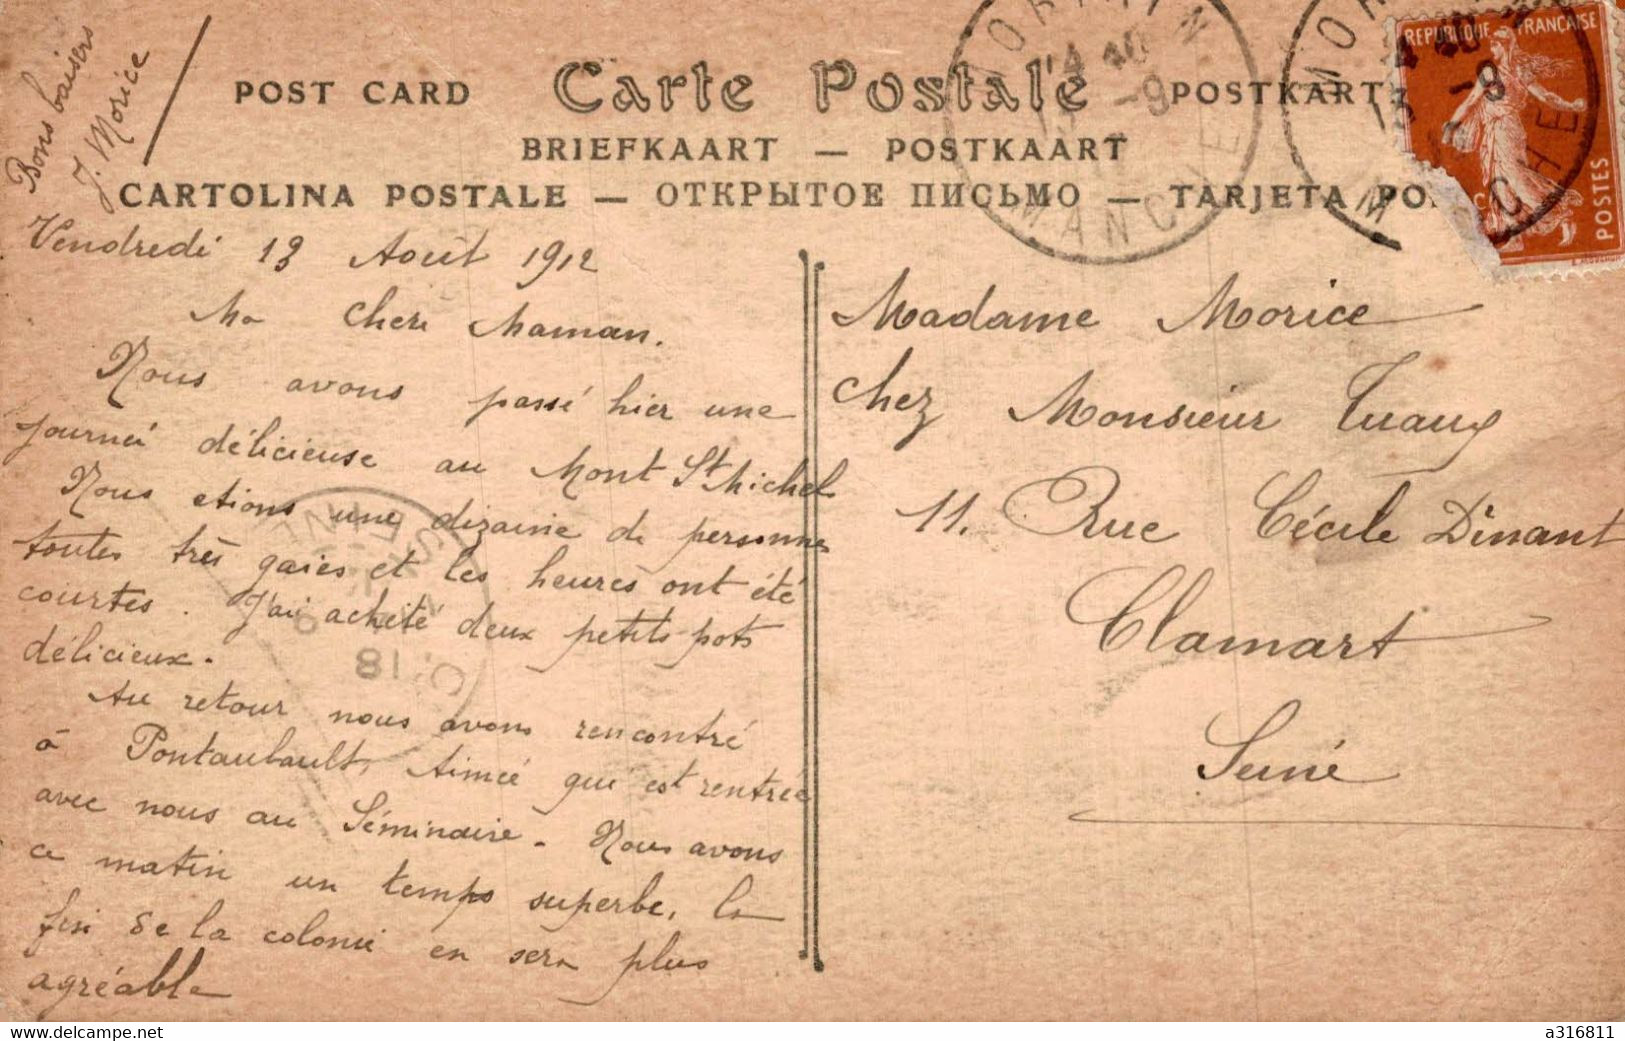 Bons baisers
J. Morice
POST CARD Carte Postale POSTKARTE
BRIEFKAART — POSTKAART
CARTOLINA POSTALE — ОТКРЫТОЕ ПИСЬМО — TARJETA PO
REPUBLIQUE FRANÇAISE
POSTES
MORTAIN
MANCHE
Vendredi 13 Août 1912
Ma chere Maman.
Nous avons passé hier une
journeé délicieuse au Mont St Michel
Nous etions une dizaine de personnes
toutes très gaies et les heures ont été
courtes. J'ai acheté deux petits pots
délicieux.
Au retour nous avons rencontré
à Pontaubault, Aimeé qui est rentrée
avec nous au Séminaire. Nous avons
ce matin un temps superbe, la
fin de la colonie en sera plus
agréable
Madame Morice
chez Monsieur
11. Rue Cécile Dinant
Clamart
Seine
a316811
delcampe.net